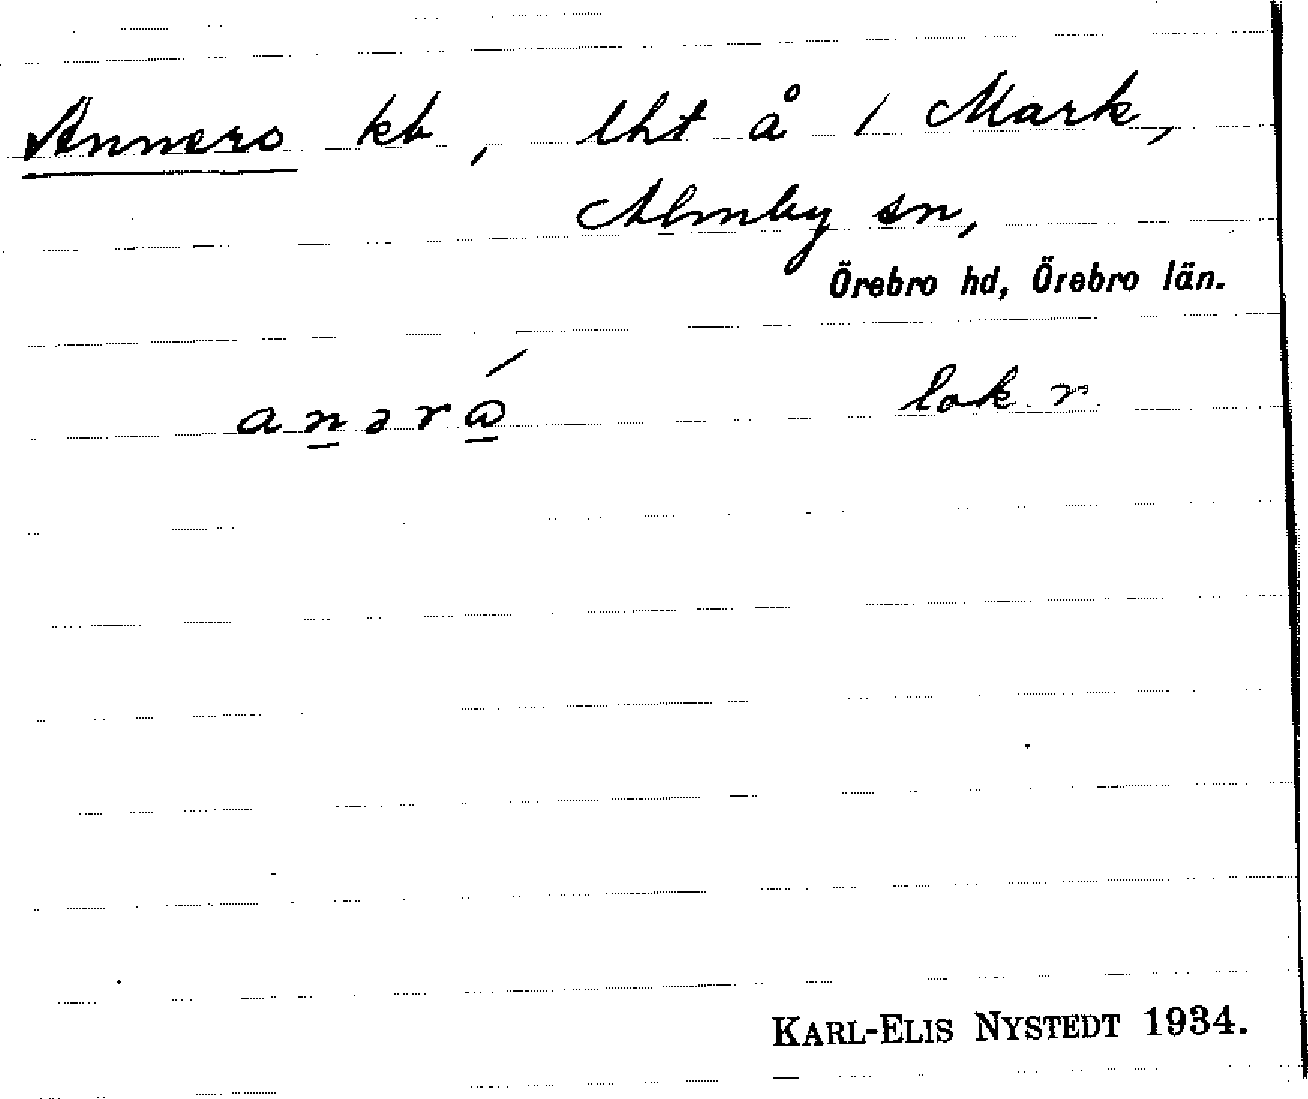 Annero kb, lht å 1 Mark,
Almby sn,
Örebro hd, Örebro län.
anərɷ́ lok. r.
KARL-ELIS NYSTEDT 1934.